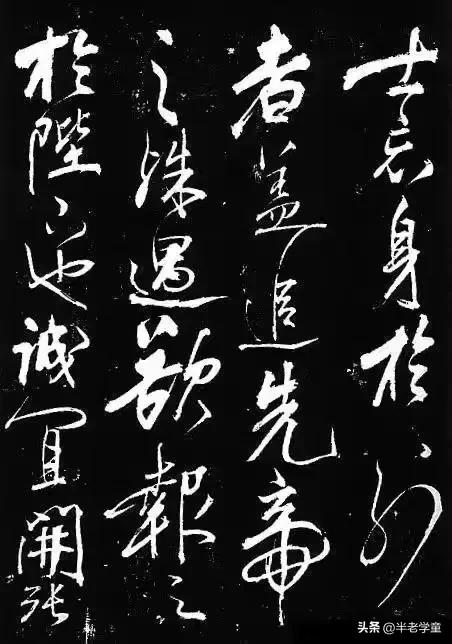 士忘身於外
者盖追先帝
之殊遇欲報之
於陛下也誠宜開張
头条 @半老学童